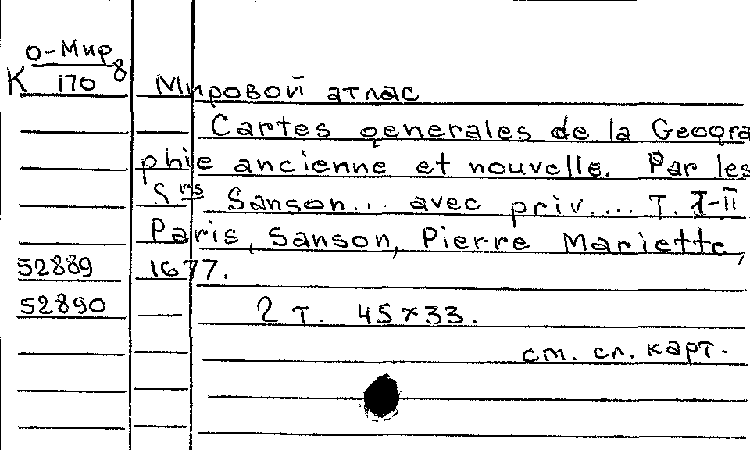 О-Мир
К 170 8
Мировой атлас
Cartes generales de la Geogra
phie ancienne et nouvelle. Par les
Srs Sanson... avec priv.... T. I-II
Paris, Sanson, Pierre Mariette,
52889 1677.
52890 2 т. 45x33.
см. сл. карт.